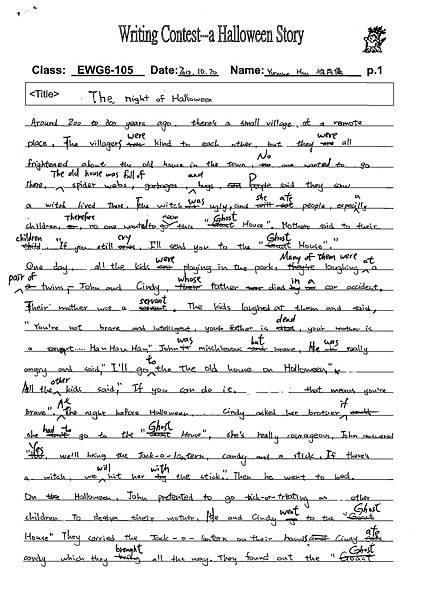 Writing Contest--a Halloween Story
Class: EWG6-105 Date: 2012.10.20 Name: Hsu p.1
<Title> The night of Halloween
Around 200 to 300 years ago, there's a small village, at a remote
were were
place. The villagers kind to each other, but they all
No
frightened about the old house in the town, one wanted to go
The old house was full of and P
there, spider webs, garbages, bugs, People said they saw
was she ate a
a witch lived there, The witch ugly, and people, especially
Therefore near Ghost
children, no one wanted to go this "House". Mother said to their
children cry Ghost
"If you still, I'll send you to the "House"."
were Many of them were at
One day, all the kids playing in the park. laughing
pair of whose in a
a twins, John and Cindy, father died car accident.
servant
Their mother was a. The kids laughed at them and said,
dead
"You're not brave and intelligent, your father is, your mother is
was but was
a servant.... Ha Ha Ha Ha" John mischievous brave, He really
to
angry and said, "I'll go the the old house on Halloween".
other
All the kids said, "If you can do it, that means you're
At if
brave". The night before Halloween, Cindy asked her brother
had to Ghost
she go to the "House", she's really courageous, John answered
"Yes
we'll bring the Jack-o-lantern, candy and a stick. If there's
will with
a witch, we hit her the stick." Then he went to bed.
On Halloween, John pretended to go trick-or-treating as other
went Ghost
children To deceive their mother, He and Cindy to the "
House" They carried the Jack-o-lantern on their hands Cindy ate
brought Ghost
candy which they all the way. They found out the "